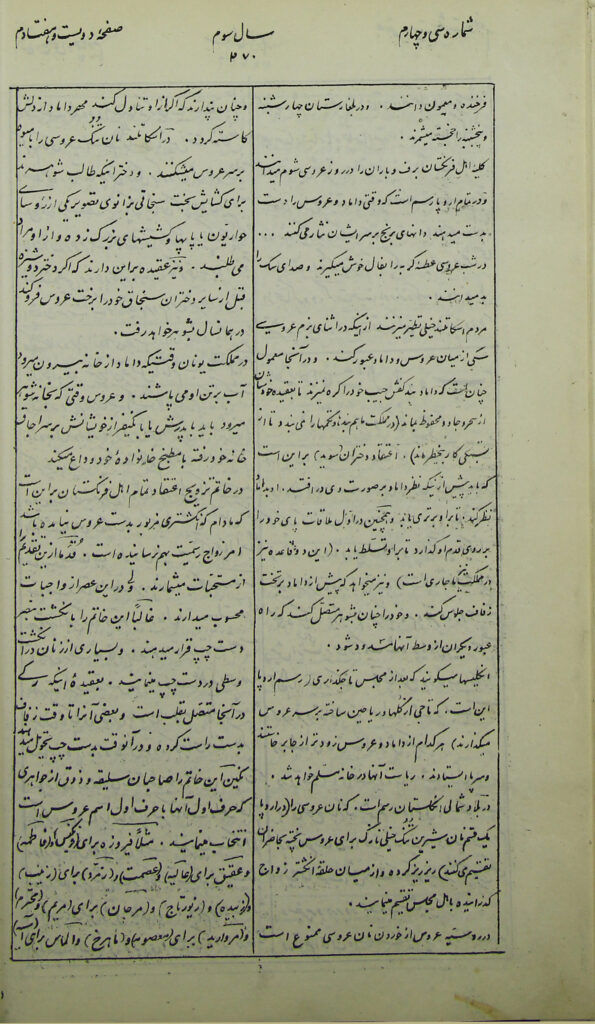 شماره سی و چهارم
سال سوم
صفحهٔ دویست و هفتادم
۲۷۰
فرخنده و میمون دانند . و در بلغارستان چهارشنبه
و پنجشنبه را خجسته میشمرند .
کلیهٔ اهل فرنگستان برف و باران را در روز عروسی شوم میدانند
و در تمام اروپا رسم است که وقتی داماد و عروس را دست
بدست میدهند دانهای برنج بر سر ایشان نثار می کنند ...
در شب عروسی عطسهٔ گربه را بفال خوش میگیرند و صدای سگ را
بد میدانند .
مردم اسکاتلند خیلی تطیر میزنند از اینکه در اثنای بزم عروسی
سگی از میان عروس و داماد عبور کند . و در آنجا معمول
چنان است که داماد بند کفش چپ خود را گره نمیزند تا بعقیده خودشان
از سحر و جادو محفوظ بماند (در مملکت ما هم بند و تکمها را نمی بندند تا از
بستگی کار بخطر ماند) . اعتقاد دختران (سوید) بر این است
که باید پیش از آنیکه نظر داماد بر صورت وی در افتد . او بداماد
نظر کند . تا بر او برتری یابد و همچنین در اول ملاقات پای خود را
بر روی قدم او گذارد تا بر او تسلط یابد . (این دو قاعده نیز
در مملکت ما جاری است) و نیز میخواهد که پیش از داماد بر تخت
زفاف جلوس کند . و خود را چنان بشوهر متصل کند که راه
عبور دیگران از وسط آنها مسدود شود .
انگلیسها میگویند که بعد از مجلس تاجگذاری (رسم اروپا
این است . که تاجی از گلها و ریاحین ساخته بر سر عروس
میگذارند) هر کدام از داماد و عروس زودتر از جا برخاستند
و سر پا ایستادند . ریاست آنها در خانه مسلم خواهد شد .
در بلاد شمالی انگلستان رسم است . که نان عروسی را (در اروپا
یک قسم نان شیرین تنک خیلی نازک برای عروس پخته بحاضران
تقسیم می کنند) ریز ریز کرده و از میان حلقهٔ انگشتر زواج
گذرانیده باهل مجلس تقسیم مینمایند .
در روسیه عروس از خوردن نان عروسی ممنوع است
و چنان پندارند که اگر از او تناول کند مهر داماد از دلش
کاسته گردد . در اسکاتلند نان تنک عروسی را
بر سر عروس میشکنند . و دخترانیکه طالب شوهرند
برای گشایش بخت سنجاقی بزانوی تصویر یکی از رؤسای
حواریون یا پاپها و کشیشهای بزرگ زده و از او مراد
می طلبند . و نیز عقیده بر این دارند که اگر دختر دوشیزه
قبل از سایر دختران سنجاق خود را برخت عروس فرو کند
در همان سال بشوهر خواهد رفت .
در مملکت یونان وقتیکه داماد از خانه بیرون میرود
آب بر تن او می پاشند . و عروس وقتی که بخانه شوهر
میرود باید پدرش یا یکنفر از خویشانش بر سر اجاق
خانه خود رفته با مطبخ خانوادهٔ خود وداع میکند
در خاتم تزویج اعتقاد تمام اهل فرنگستان بر این است
که مادام که انگشتری مزبور بدست عروس نیامده باشد
امر زواج رسمیت بهم نرسانیده است . قدما ازین تقدیم را
از مستحبات میشمارند . ولی در این عصر از واجبات
محسوب میدارند . غالباً این خاتم را بانگشت بنصر
دست چپ قرار میدهند . و بسیاری از زنان در انگشت
وسطی در دست چپ مینمایند . بعقیدهٔ اینکه رگی
در آنجا متصل بقلب است و بعضی آنرا تا وقت زفاف
بدست راست کرده و در آنوقت بدست چپ تحویل میدهند
نگین این خاتم را صاحبان سلیقه و ذوق از جواهری
که حرف اول آنها با حرف اول اسم عروس است
انتخاب مینمایند . مثلاً فیروزه برای و (فاطمه)
و عقیق برای (عالیه) و (عصمت) و (زمرد) برای (زینب)
و (زبیده) و (زیورتاج) و (مرجان) برای (مریم) و (محترم)
و (مروارید) برای (معصومه) و (ماهرخ) و الماس برای